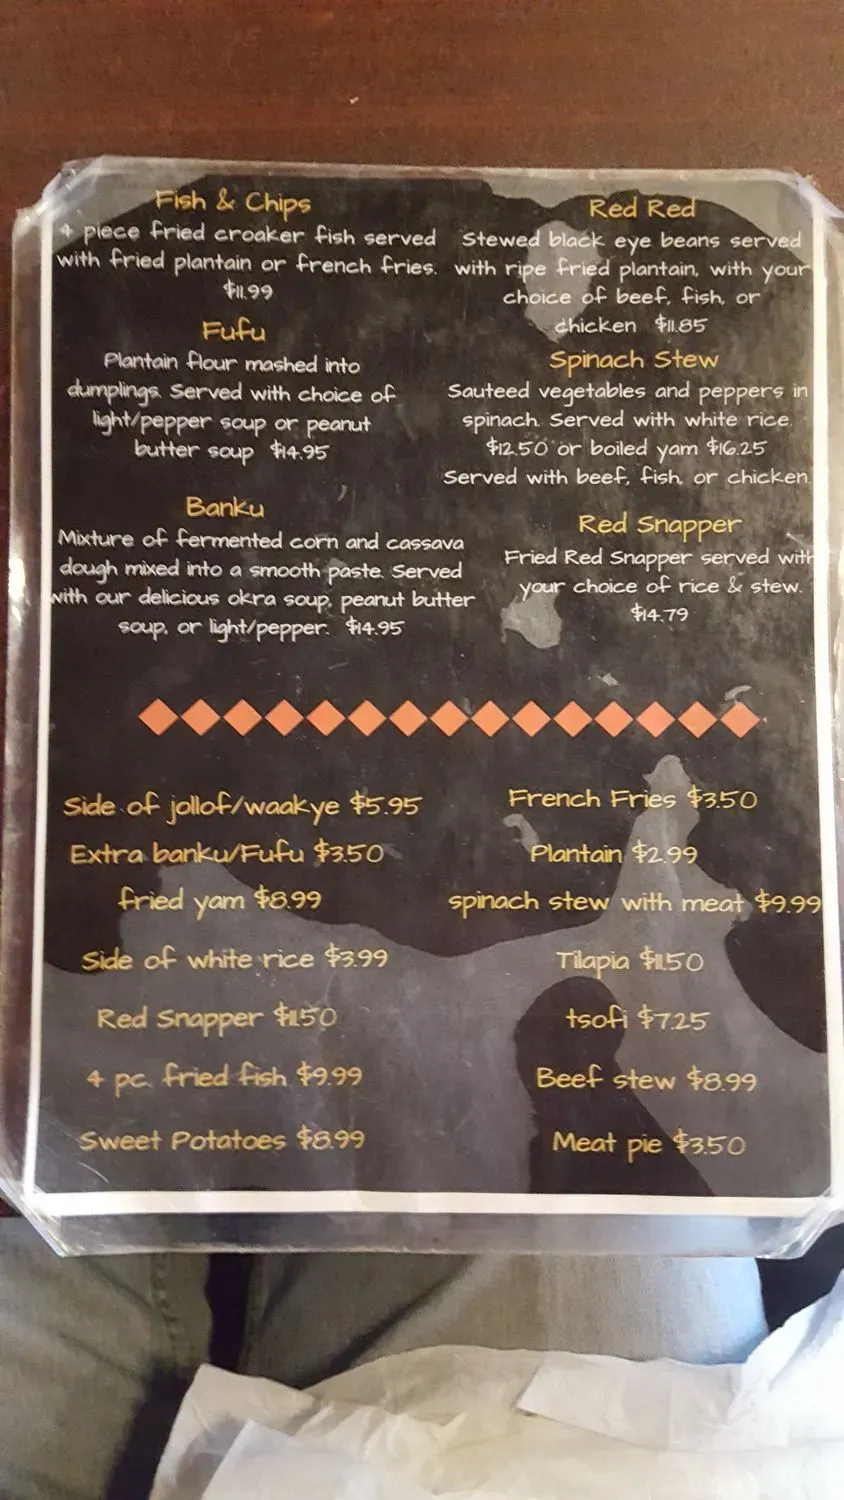 Fish & Chips
4 piece fried croaker fish served
with fried plantain or french fries.
$11.99
Fufu
Plantain flour mashed into
dumplings. Served with choice of
light/pepper soup or peanut
butter soup $14.95
Banku
Mixture of fermented corn and cassava
dough mixed into a smooth paste. Served
with our delicious okra soup, peanut butter
soup, or light/pepper. $14.95
Red Red
Stewed black eye beans served
with ripe fried plantain, with your
choice of beef, fish, or
chicken $11.85
Spinach Stew
Sauteed vegetables and peppers in
spinach. Served with white rice.
$12.50 or boiled yam $16.25
Served with beef, fish, or chicken.
Red Snapper
Fried Red Snapper served with
your choice of rice & stew.
$14.79
Side of jollof/waakye $5.95
Extra banku/Fufu $3.50
fried yam $8.99
Side of white rice $3.99
Red Snapper $11.50
4 pc. fried fish $9.99
Sweet Potatoes $8.99
French Fries $3.50
Plantain $2.99
spinach stew with meat $9.99
Tilapia $11.50
tsofi $7.25
Beef stew $8.99
Meat pie $3.50